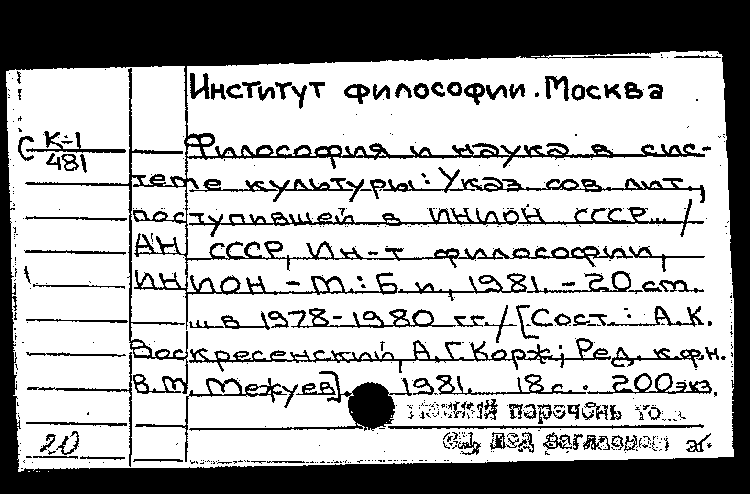 Институт философии. Москва
С К-1
481
Философия и наука в сис-
теме культуры: Указ. сов. лит.,
поступившей в ИНИОН СССР... /
АН СССР, Ин-т философии,
ИНИОН. - М.: Б. и., 1981. - 20 cm.
... в 1978-1980 гг. / [Сост.: А.К.
Воскресенский, А.Г. Корж; Ред. к.фн.
В.М. Межуев]. 1981. 18 с. 200 экз.
перечень
под
20